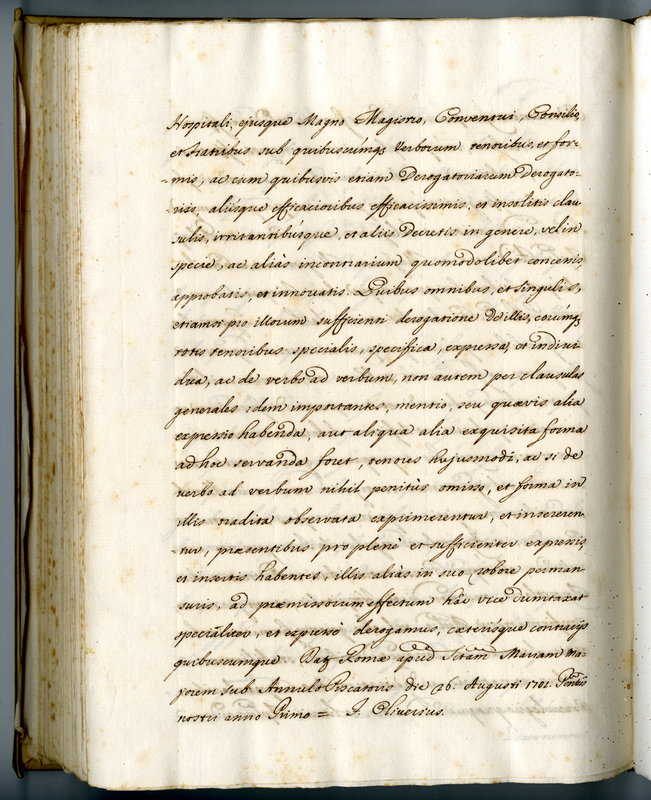 Hospitali, ejusque Magno Magistro, Conventui, Consilio,
et fratribus sub quibuscumq; verborum tenoribus, et for-
-mis, ac cum quibusvis etiam Derogatoriarum derogato-
-riis, aliisque efficacioribus efficacissimis, et insolitis clau
sulis, irritantibusque, et aliis Decretis in genere, vel in
specie, ac aliàs in contrarium quomodolibet concessis,
approbatis, et innovatis. Quibus omnibus, et singulis,
etiamsi pro illorum sufficienti derogatione de illis, eorumq;
totis tenoribus specialis, specifica, expressa, et indivi
dua, ac de verbo ad verbum, non autem per clausulas
generales idem importantes, mentio, seu quævis alia
expressio habenda, aut aliqua alia exquisita forma
ad hoc servanda foret, tenores hujusmodi, ac si de
verbo ad verbum nihil penitùs omisso, et forma in
illis tradita observata exprimerentur, et insereren
-tur, præsentibus pro plenè et sufficienter expressis,
et insertis habentes, illis aliàs in suo robore perman
suris, ad præmissorum effectum hàc vice dumtaxat
specialiter, et expressè derogamus, cæterisque contrarijs
quibuscumque. Dat; Romæ apud Sctam Mariam Ma-
jorem sub Annulo Piscatoris die 26. Augusti 1701. Pontus
nostri anno Primo = J. Oliverius.